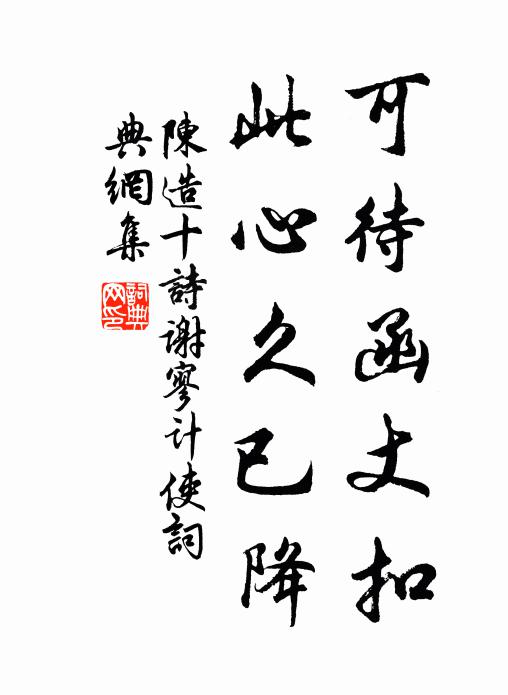 可待函丈扣
此心久已降
陳造十詩謝寥計使詞
典網集
詞典網印